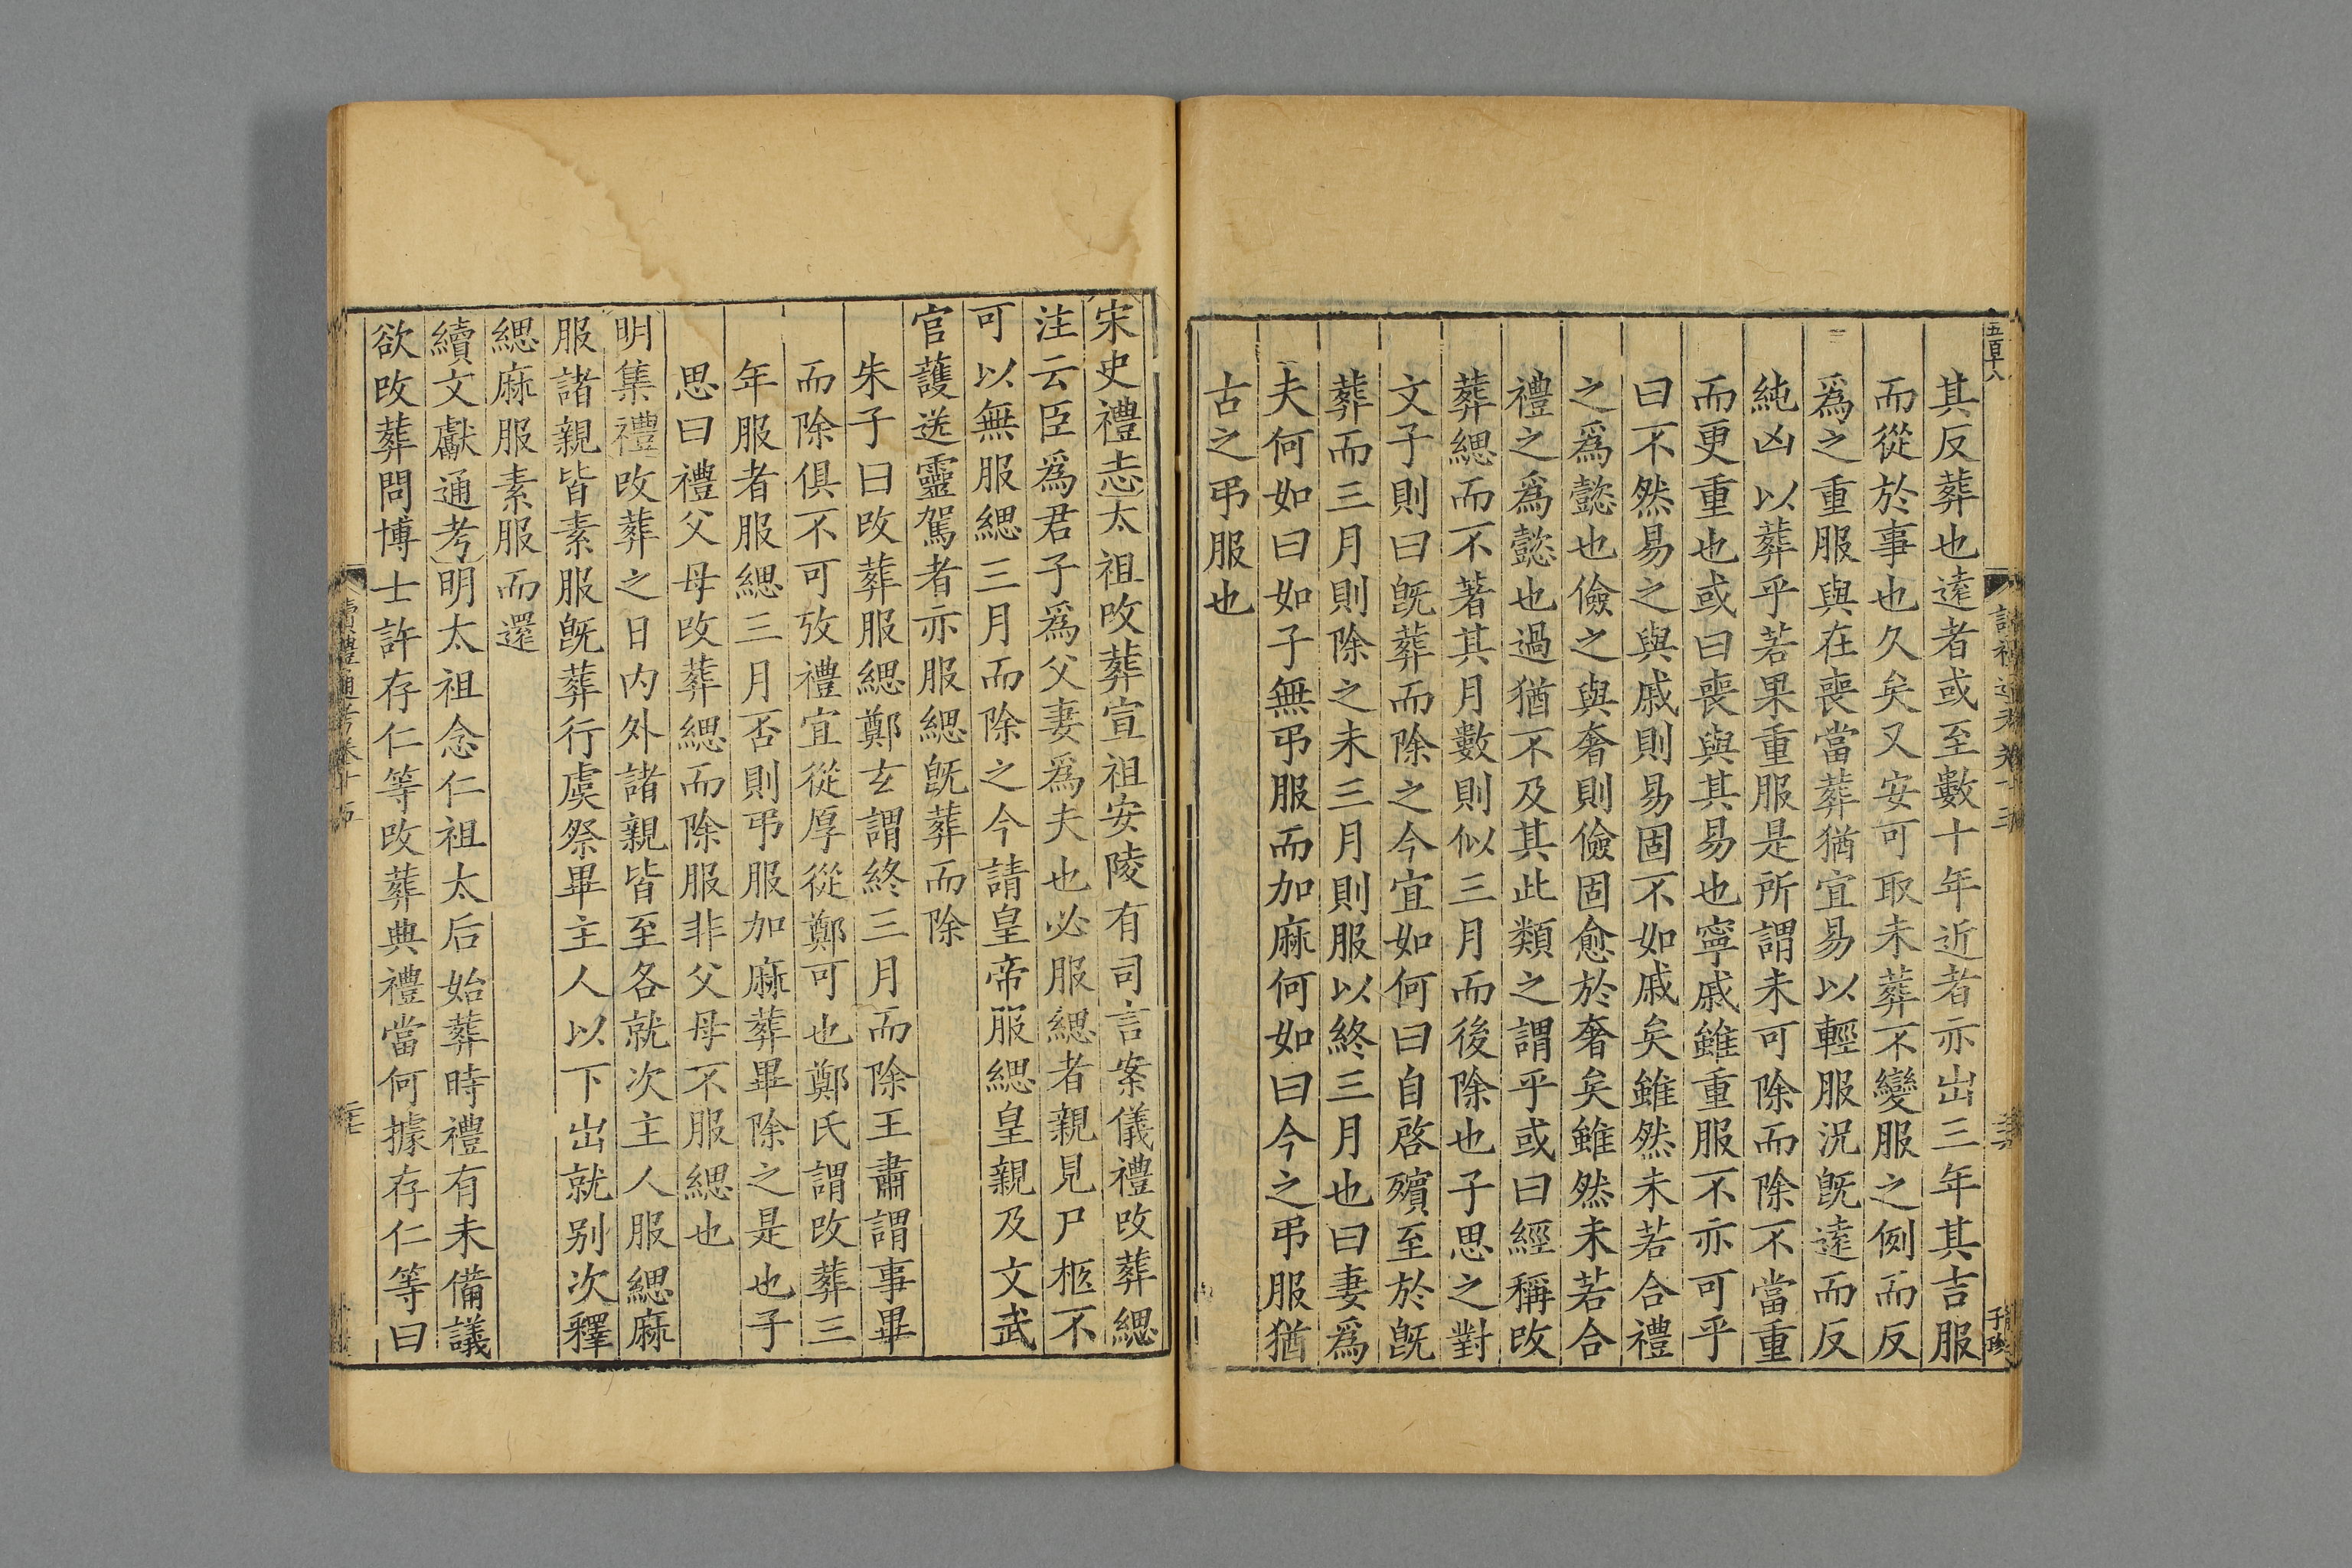 五百十八
其反葬也遠者或至數十年近者亦出三年其吉服
而從於事也久矣又安可取未葬不變服之例而反
爲之重服與在喪當葬猶宜易以輕服況旣遠而反
純凶以葬乎若果重服是所謂未可除而除不當重
而更重也或曰喪與其易也寧戚雖重服不亦可乎
曰不然易之與戚則易固不如戚矣雖然未若合禮
之爲懿也儉之與奢則儉固愈於奢矣雖然未若合
禮之爲懿也過猶不及其此類之謂乎或曰經稱改
葬緦而不著其月數則似三月而後除也子思之對
文子則曰旣葬而除之今宜如何曰自啓殯至於旣
葬而三月則除之未三月則服以終三月也曰妻爲
夫何如曰如子無弔服而加麻何如曰今之弔服猶
古之弔服也
宋史禮志太祖改葬宣祖安陵有司言案儀禮改葬緦
注云臣爲君子爲父妻爲夫也必服緦者親見尸柩不
可以無服緦三月而除之今請皇帝服緦皇親及文武
官護送靈駕者亦服緦旣葬而除
朱子曰改葬服緦鄭玄謂終三月而除王肅謂事畢
而除俱不可攷禮宜從厚從鄭可也鄭氏謂改葬三
年服者服緦三月否則弔服加麻葬畢除之是也子
思曰禮父母改葬緦而除服非父母不服緦也
明集禮改葬之日內外諸親皆至各就次主人服緦麻
服諸親皆素服旣葬行虞祭畢主人以下出就別次釋
緦麻服素服而還
續文獻通考明太祖念仁祖太后始葬時禮有未備議
欲改葬問博士許存仁等改葬典禮當何據存仁等曰
讀禮通考卷十五